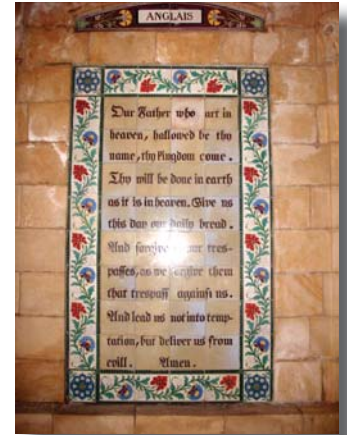 ANGLAIS
Our Father who art in
heaven, hallowed be thy
name, thy Kingdom come.
Thy will be done in earth
as it is in heaven. Give us
this day our daily bread.
And forgive our tres-
passes, as we forgive them
that trespass against us.
And lead us not into temp-
tation, but deliver us from
evill. Amen.